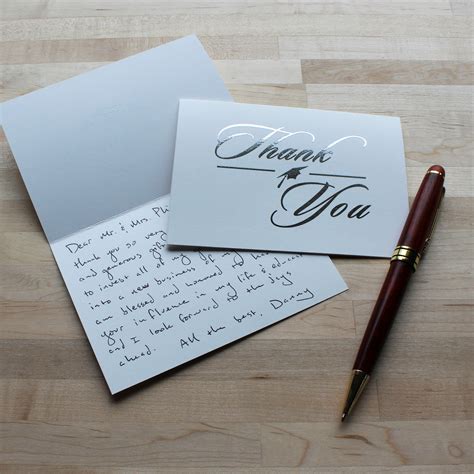 Thank
You
Dear Mr. & Mrs. Ph
thank you so very
and generous
to invest all of my
into a new business
am blessed and honored to have
your influence in my life &
and I look forward to the days
ahead. All the best, Danny